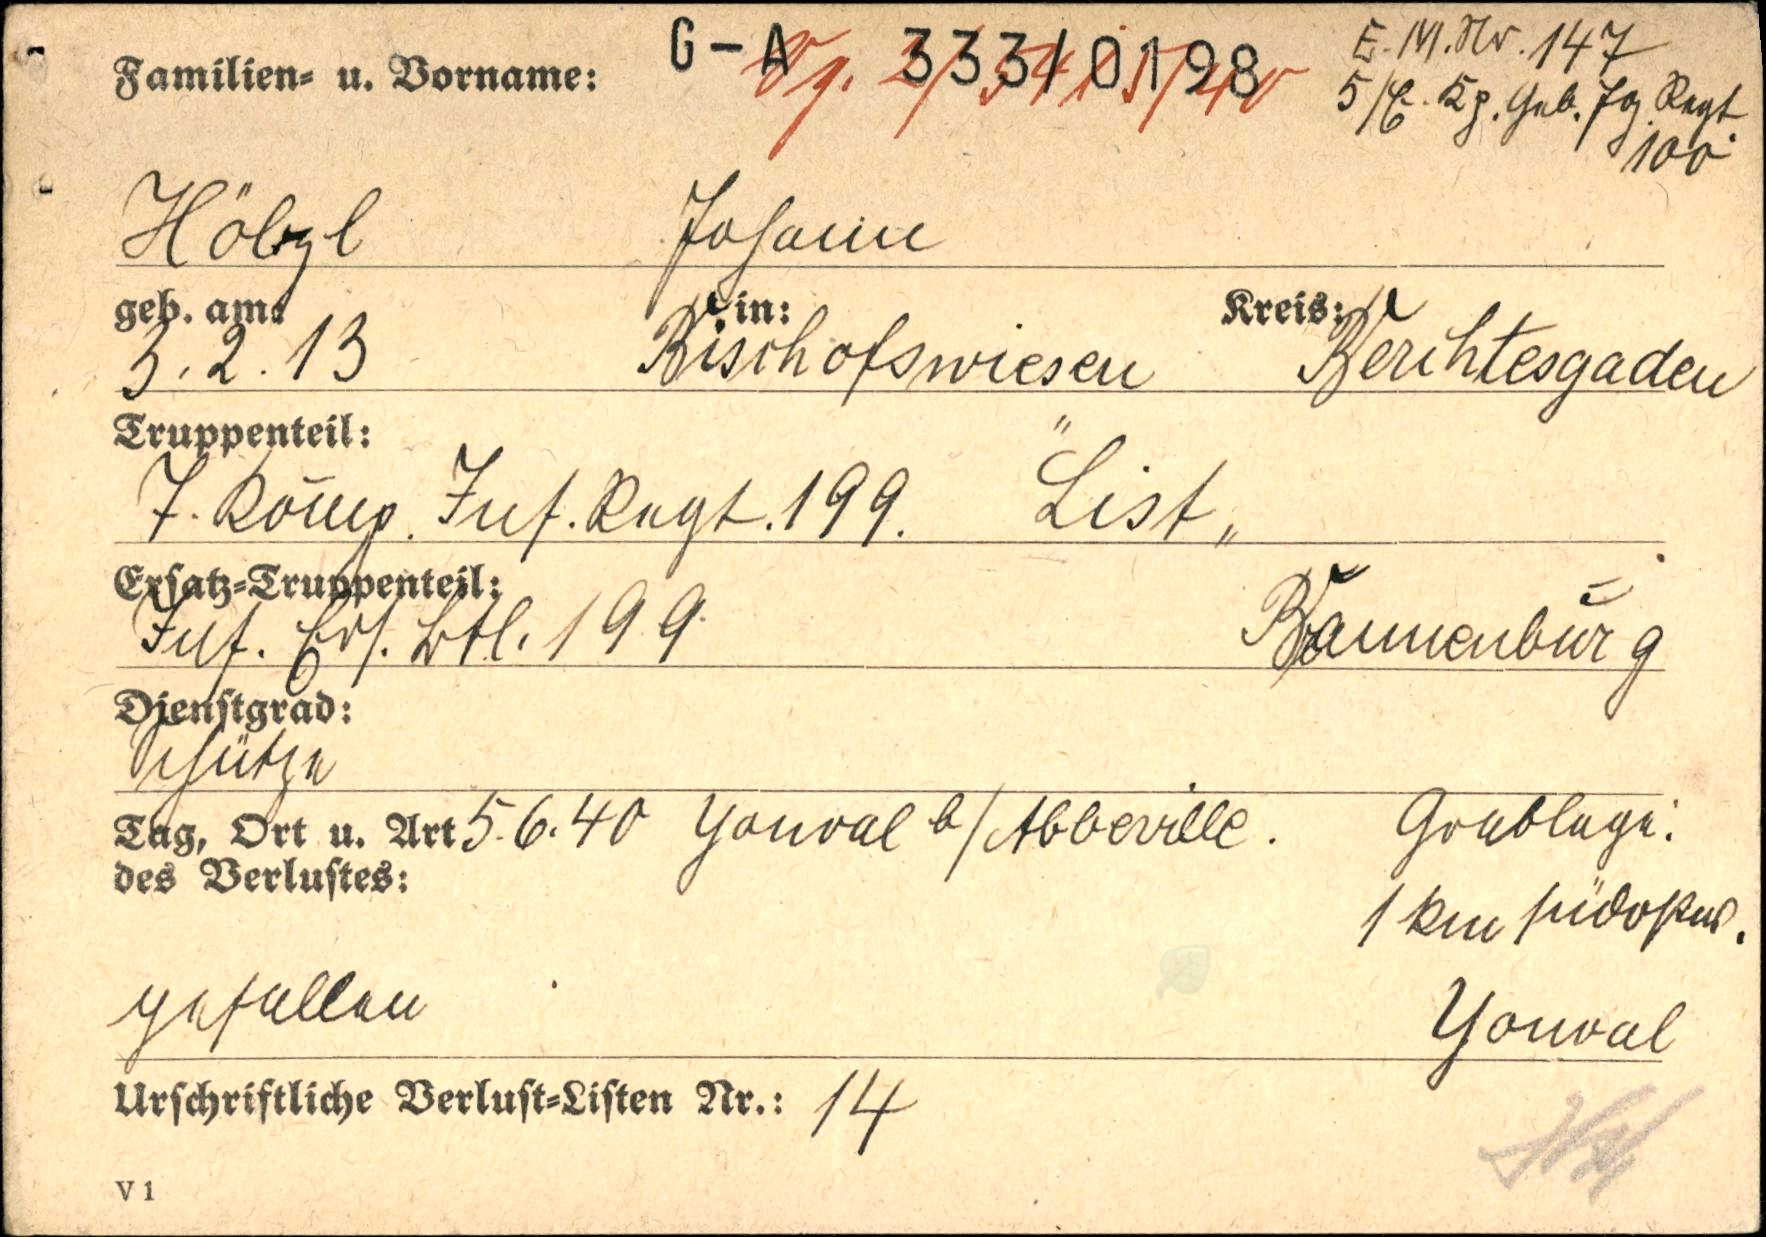 G-A 333/0198
E.M.Nr. 147
Familien= u. Vorname:
5/E. Kp. Geb. Jäg. Regt.
100
Hölzl Johann
geb. am: in: Kreis:
3.2.13 Bischofswiesen Berchtesgaden
Truppenteil:
7. Komp. Inf. Regt. 199. "List"
Ersatz=Truppenteil:
Inf. Ers. Btl. 199. Brannenburg
Dienstgrad:
Schütze
Tag, Ort u. Art 5.6.40 Yonval b/Abbeville. Grablage:
des Verlustes:
1 km südostw.
gefallen Yonval
Urschriftliche Verlust=Listen Nr.: 14
V 1